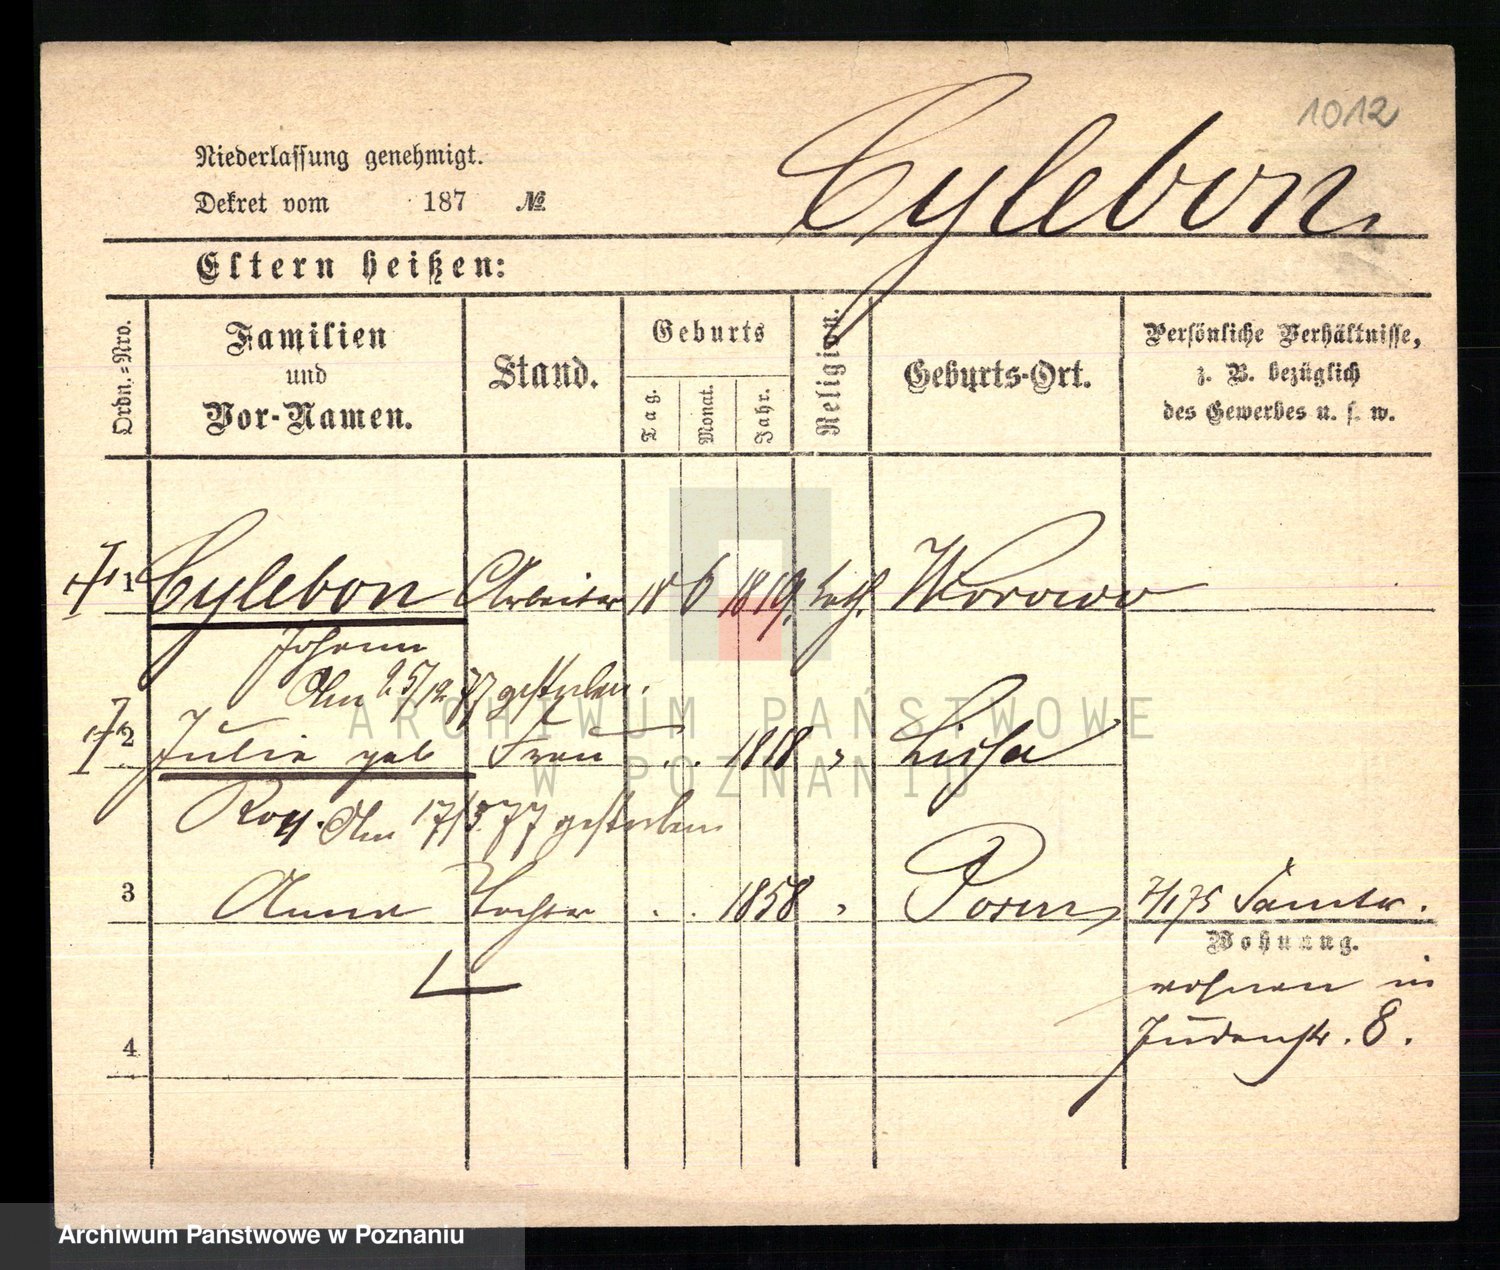 1012
Cylebon
Niederlassung genehmigt.
Dekret vom 187 №
Eltern heißen:
Ordn.-Nro.
Familien
und
Vor-Namen.
Stand.
Geburts
Tag.
Monat.
Jahr.
Religion.
Geburts-Ort.
Persönliche Verhältnisse,
z. B. bezüglich
des Gewerbes u. s. w.
1 Cylebon Arbeiter 18 6 1819. kath.
Johann
Am 25/12 77 gestorben.
ARCHIWUM PAŃSTWOWE
W POZNANIU
2 Julie geb Frau .. 1818 "
Am 17/5 77 gestorben
3 Anna Tochter .. 1858 " Posen
Wohnung.
wohnen in
Judenstr. 8.
4
Archiwum Państwowe w Poznaniu